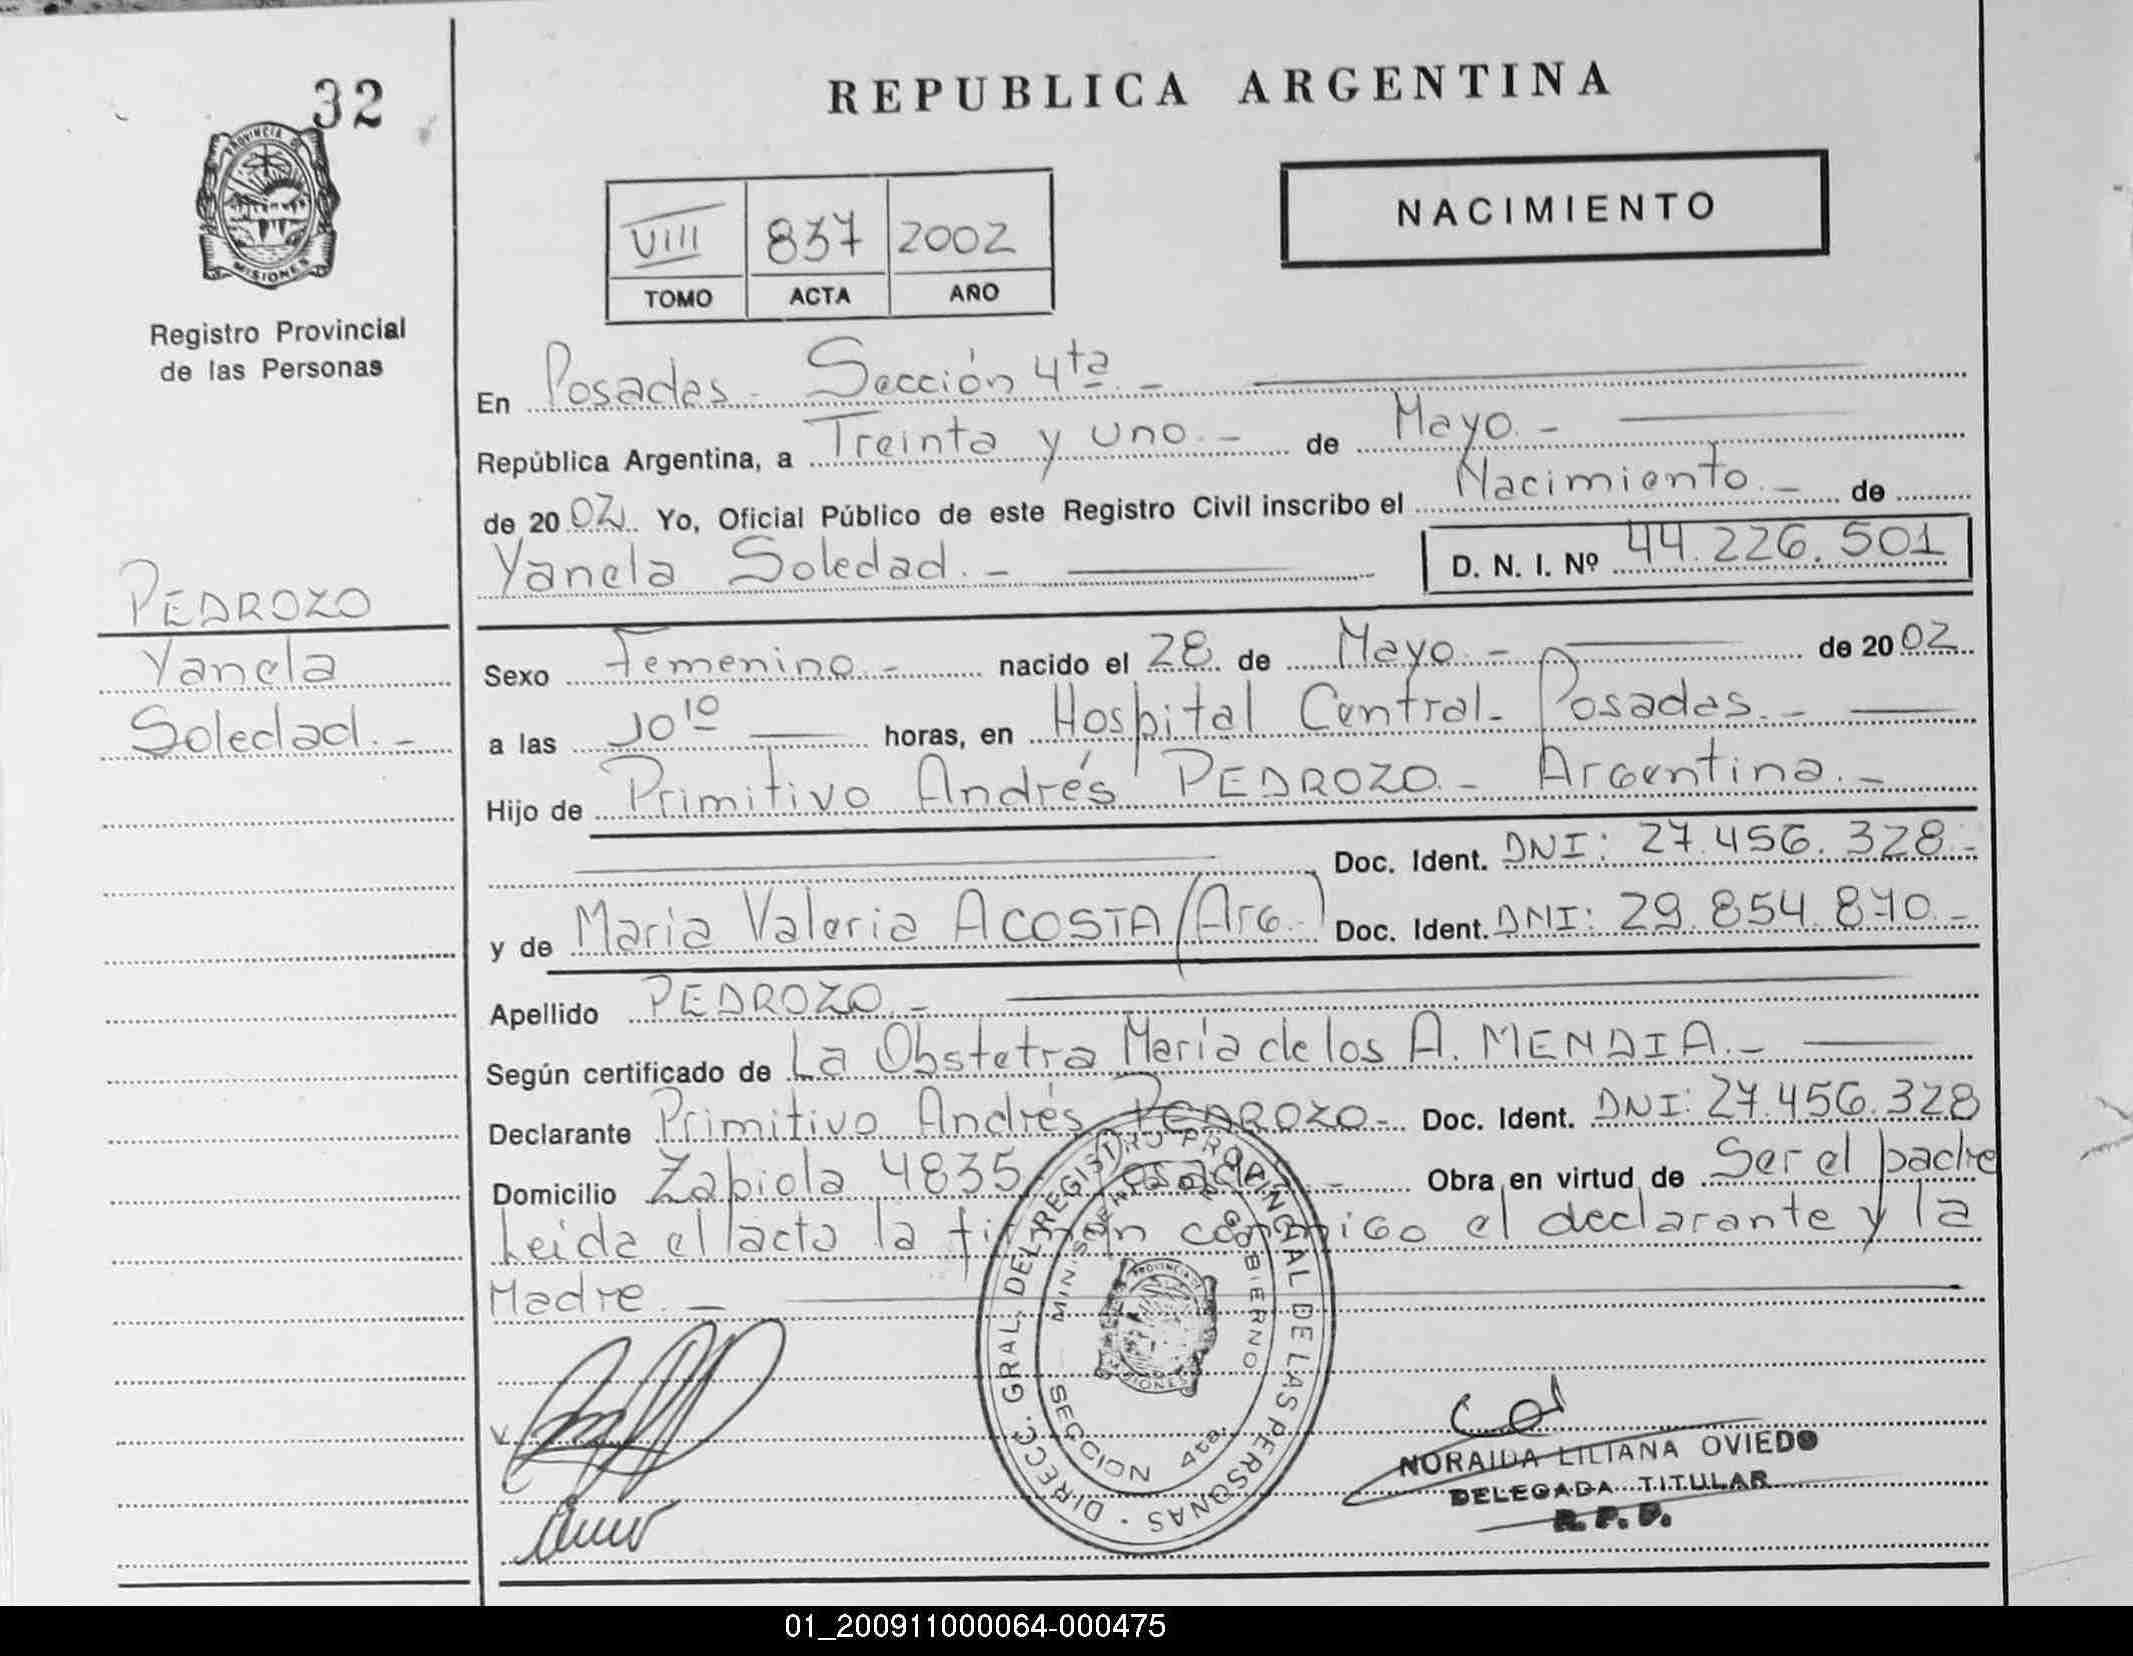 32
PROVINCIA DE
MISIONES
Registro Provincial
de las Personas
PEDROZO
Yanela
Soledad.-
REPUBLICA ARGENTINA
VIII 837 2002
TOMO ACTA AÑO
NACIMIENTO
En Posadas - Sección 4ta.-
República Argentina, a Treinta y uno.- de Mayo.-
de 2002. Yo, Oficial Público de este Registro Civil inscribo el Nacimiento.- de
Yanela Soledad.- D. N. I. Nº 44.226.501
Sexo Femenino.- nacido el 28 de Mayo.- de 2002
a las 10 10 horas, en Hospital Central- Posadas.-
Hijo de Primitivo Andrés PEDROZO - Argentina.-
Doc. Ident. DNI: 27.456.328.-
y de Maria Valeria ACOSTA (Arg.) Doc. Ident. DNI: 29.854.870.-
Apellido PEDROZO.-
Según certificado de La Obstetra María de los A. MENDIA.-
Declarante Primitivo Andrés PEDROZO- Doc. Ident. DNI: 27.456.328
Domicilio Zabiola 4835 Posadas.- Obra en virtud de Ser el padre
Leida el acta la firman conmigo el declarante y la
Madre.-
DIRECC. GRAL. DEL REGISTRO PROVINCIAL DE LAS PERSONAS
MINISTERIO DE GOBIERNO
SECCION 4ta.
NORAIDA LILIANA OVIEDO
DELEGADA TITULAR
R. P. P.
01_200911000064-000475